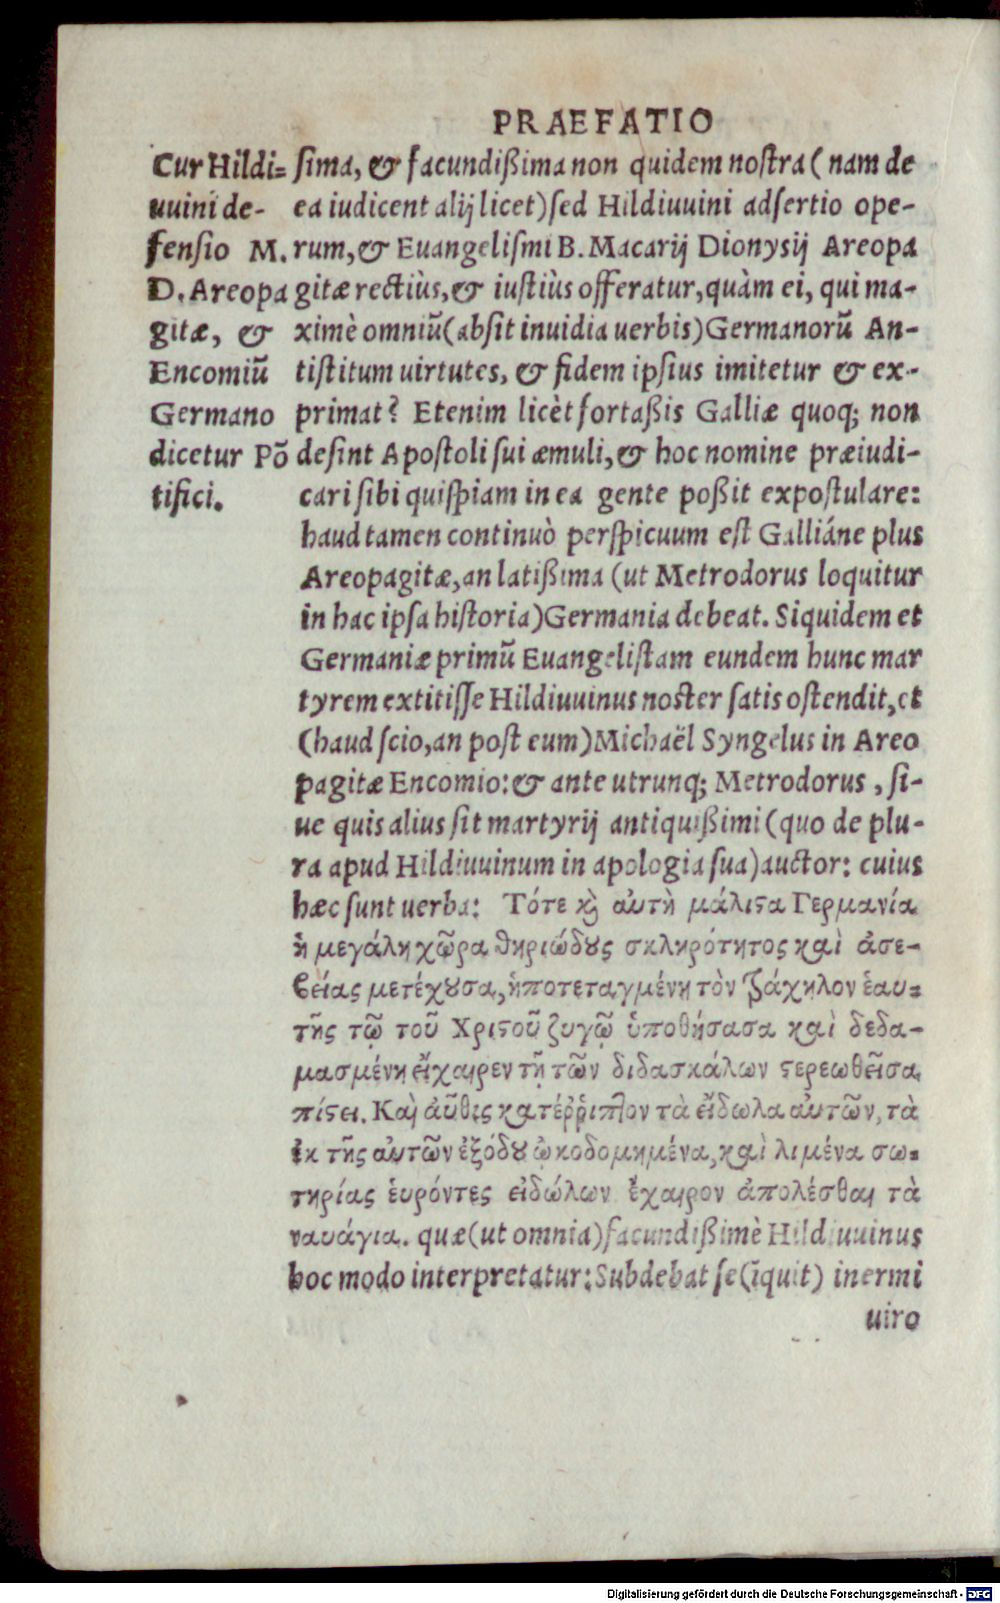 PRAEFATIO
Cur Hildi=
uuini de-
fensio M.
D. Areopa
gitæ, &
Encomiũ
Germano
dicetur Põ
tifici.
sima, & facundißima non quidem nostra ( nam de
ea iudicent alij licet) sed Hildiuuini adsertio ope-
rum, & Euangelismi B. Macarij Dionysij Areopa
gitæ rectiùs, & iustiùs offeratur, quàm ei, qui ma-
ximè omniũ (absit inuidia uerbis) Germanorũ An-
tistitum uirtutes, & fidem ipsius imitetur & ex-
primat? Etenim licèt fortaßis Galliæ quoq; non
desint Apostoli sui æmuli, & hoc nomine præiudi-
cari sibi quispiam in ea gente poßit expostulare:
haud tamen continuò perspicuum est Galliáne plus
Areopagitæ, an latißima (ut Metrodorus loquitur
in hac ipsa historia) Germania debeat. Siquidem et
Germaniæ primũ Euangelistam eundem hunc mar
tyrem extitisse Hildiuuinus noster satis ostendit, et
(haud scio, an post eum) Michaël Syngelus in Areo
pagitæ Encomio: & ante utrunq; Metrodorus, si-
ue quis alius sit martyrij antiquißimi (quo de plu-
ra apud Hildiuuinum in apologia sua) auctor: cuius
hæc sunt uerba: Τότε κỳ αὐτὴ μάλιςα Γερμανία
ἡ μεγάλη χῶρα θηριώδȣς σκληρότητος καὶ ἀσε-
βείας μετέχȣσα, ἡποτεταγμένη τὸν τράχηλον ἑαυ=
τῆς τῷ τοῦ Χριςοῦ ζυγῷ ὑποθήσασα καὶ δεδα-
μασμένη ἔχαιρεν τῇ τῶν διδασκάλων ςερεωθεῖσα
πίςει. Καὶ αὖθις κατέῤῥιπτον τὰ εἴδωλα αὐτῶν, τὰ
ἐκ τῆς αὐτῶν ἐξόδȣ ᾠκοδομημένα, καὶ λιμένα σω=
τηρίας ἑυρόντες εἰδώλων ἔχαιρον ἀπολέσθαι τὰ
ναυάγια. quæ (ut omnia) facundißimè Hildiuuinus
hoc modo interpretatur: Subdebat se (ĩquit) inermi
uiro
Digitalisierung gefördert durch die Deutsche Forschungsgemeinschaft - DFG